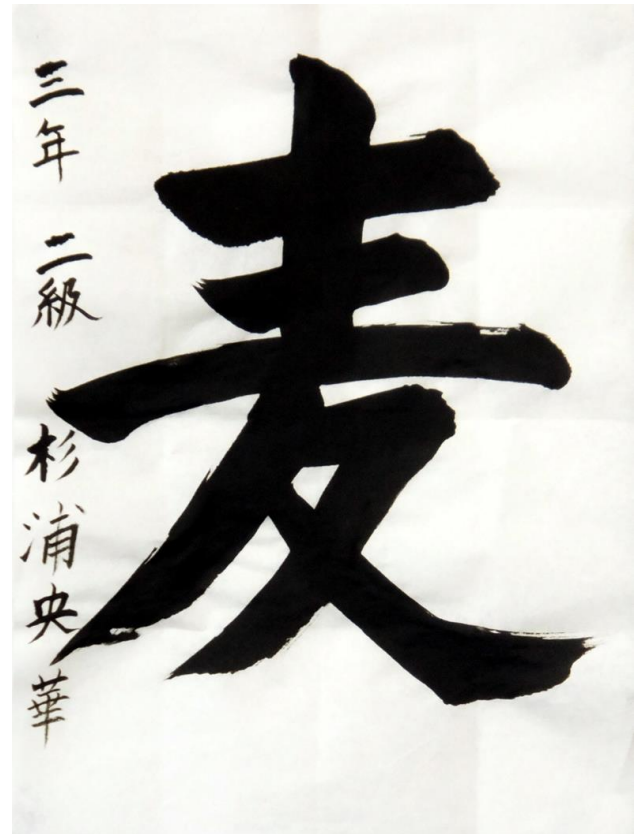 麦
三年 二級 杉浦央華